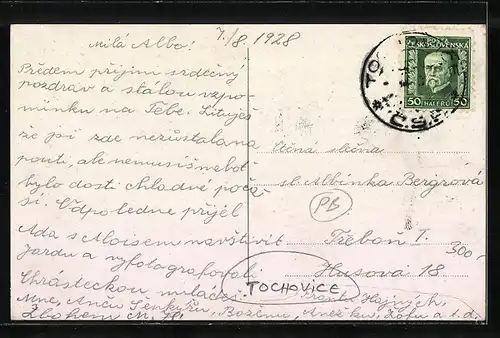 7./8. 1928
Milá Albo!
Předem přijmi srdečný
pozdrav a stálou vzpo-
mínku na Tebe. Lituješ
že jsi zde nezůstala na
pouti, ale nemusíš neboť
bylo dosti chladné poča-
sí. Odpoledne přijel
Ada s Aloisem navštívit
Jardu a vyfotografovali
Chrásteckou
Mne, Anču
Zbohem M. H. Boženu, Anežku, Žofu a t. d.
POŠTA
ČESKOSLOVENSKÁ
50 HALÉŘŮ 50
TO
Č.S.P.
Ctěná slečna
sl. Albínka Bergrová
PB
Třeboň I.
300,-
Husova 18
TOCHOVICE